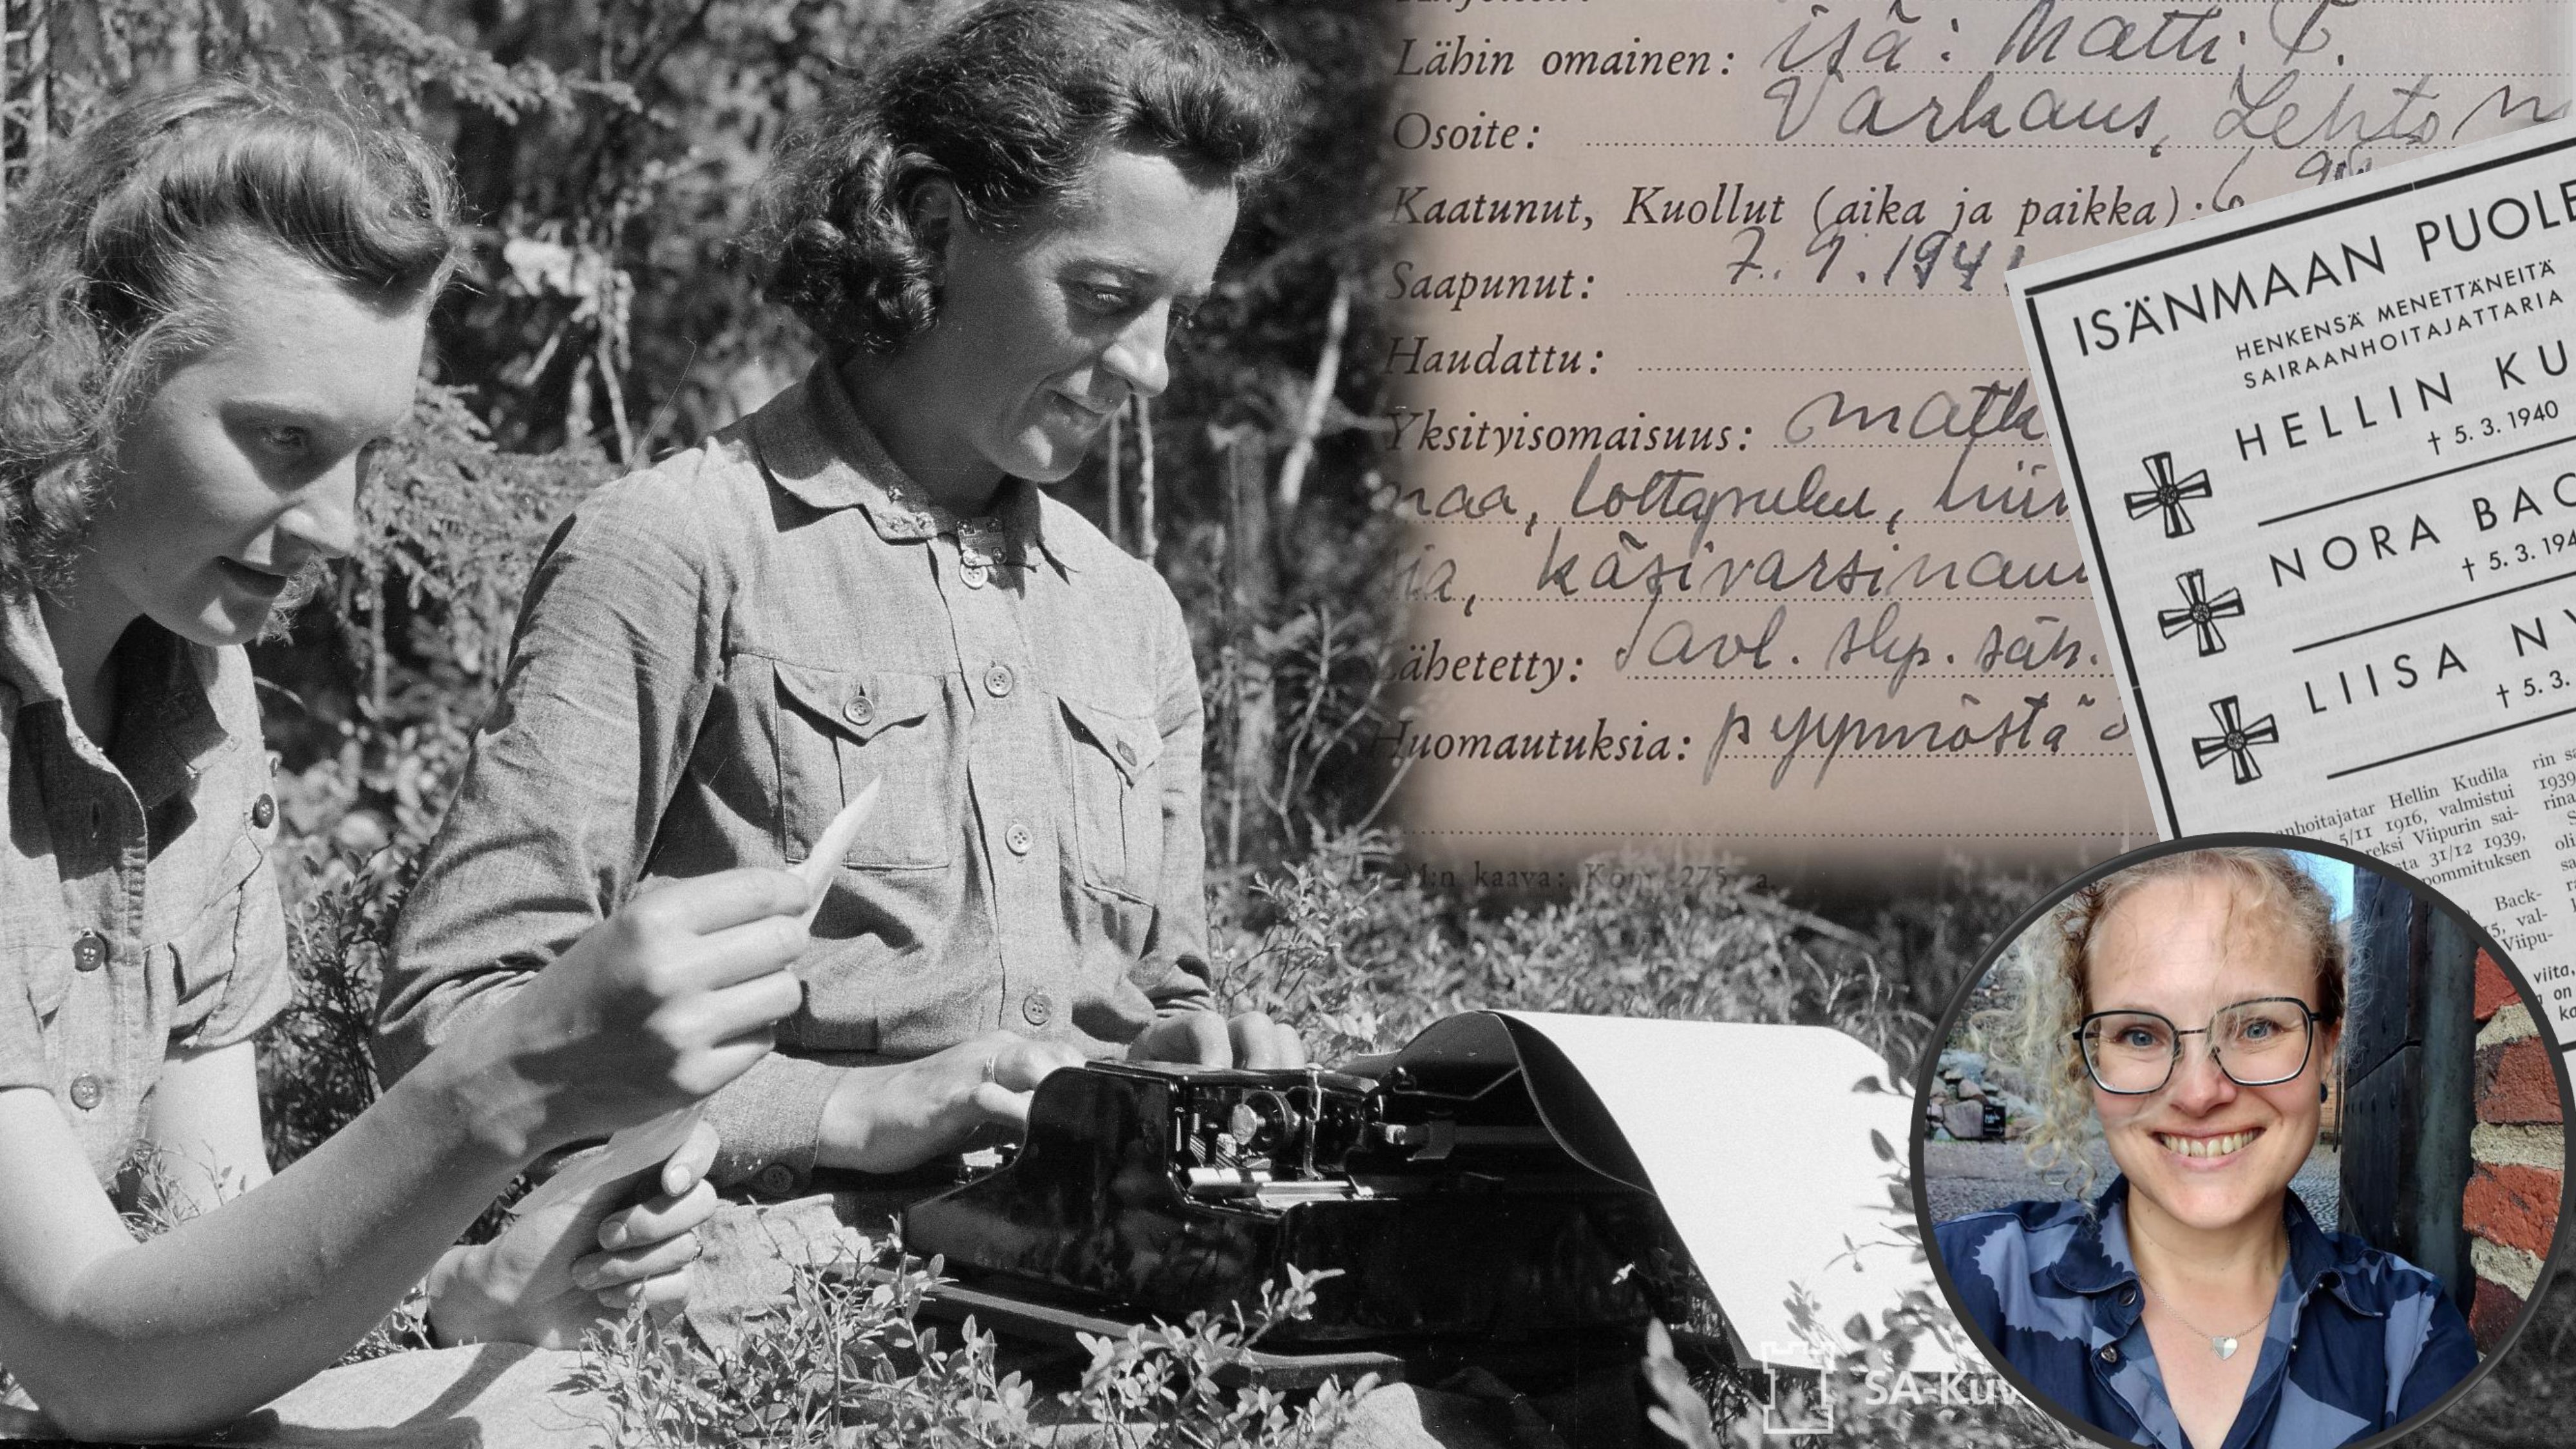 Lähin omainen: isä: Matti, P.
Osoite: Varkaus, Lehto
Kaatunut, Kuollut (aika ja paikka): 6
Saapunut: 7.9.1941
Haudattu:
Yksityisomaisuus: matk
naa, lottapuku, hiih
ia, käsivarsinau
ähetetty: Savl. skp. säh.
Huomautuksia: pyynnöstä
M:n kaava: Kom. 275. a.
ISÄNMAAN PUOLE
HENKENSÄ MENETTÄNEITÄ
SAIRAANHOITAJATTARIA
HELLIN KU
† 5. 3. 1940
NORA BAC
† 5. 3. 194
LIISA NY
† 5. 3.
anhoitajatar Hellin Kudila
5/11 1916, valmistui
reksi Viipurin sai-
sta 31/12 1939,
pommituksen
Back-
15, val-
Viipu-
rin sa
1939
rina
S
oli
sa
viita,
on
ka
SA-Kuv